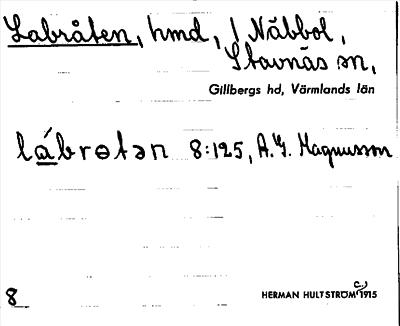 Labråten, hmd, / Näbbol,
Stavnäs sn,
Gillbergs hd, Värmlands län
lábrɵtən 8:125, A.G. Magnusson
8
HERMAN HULTSTRÖM 1915